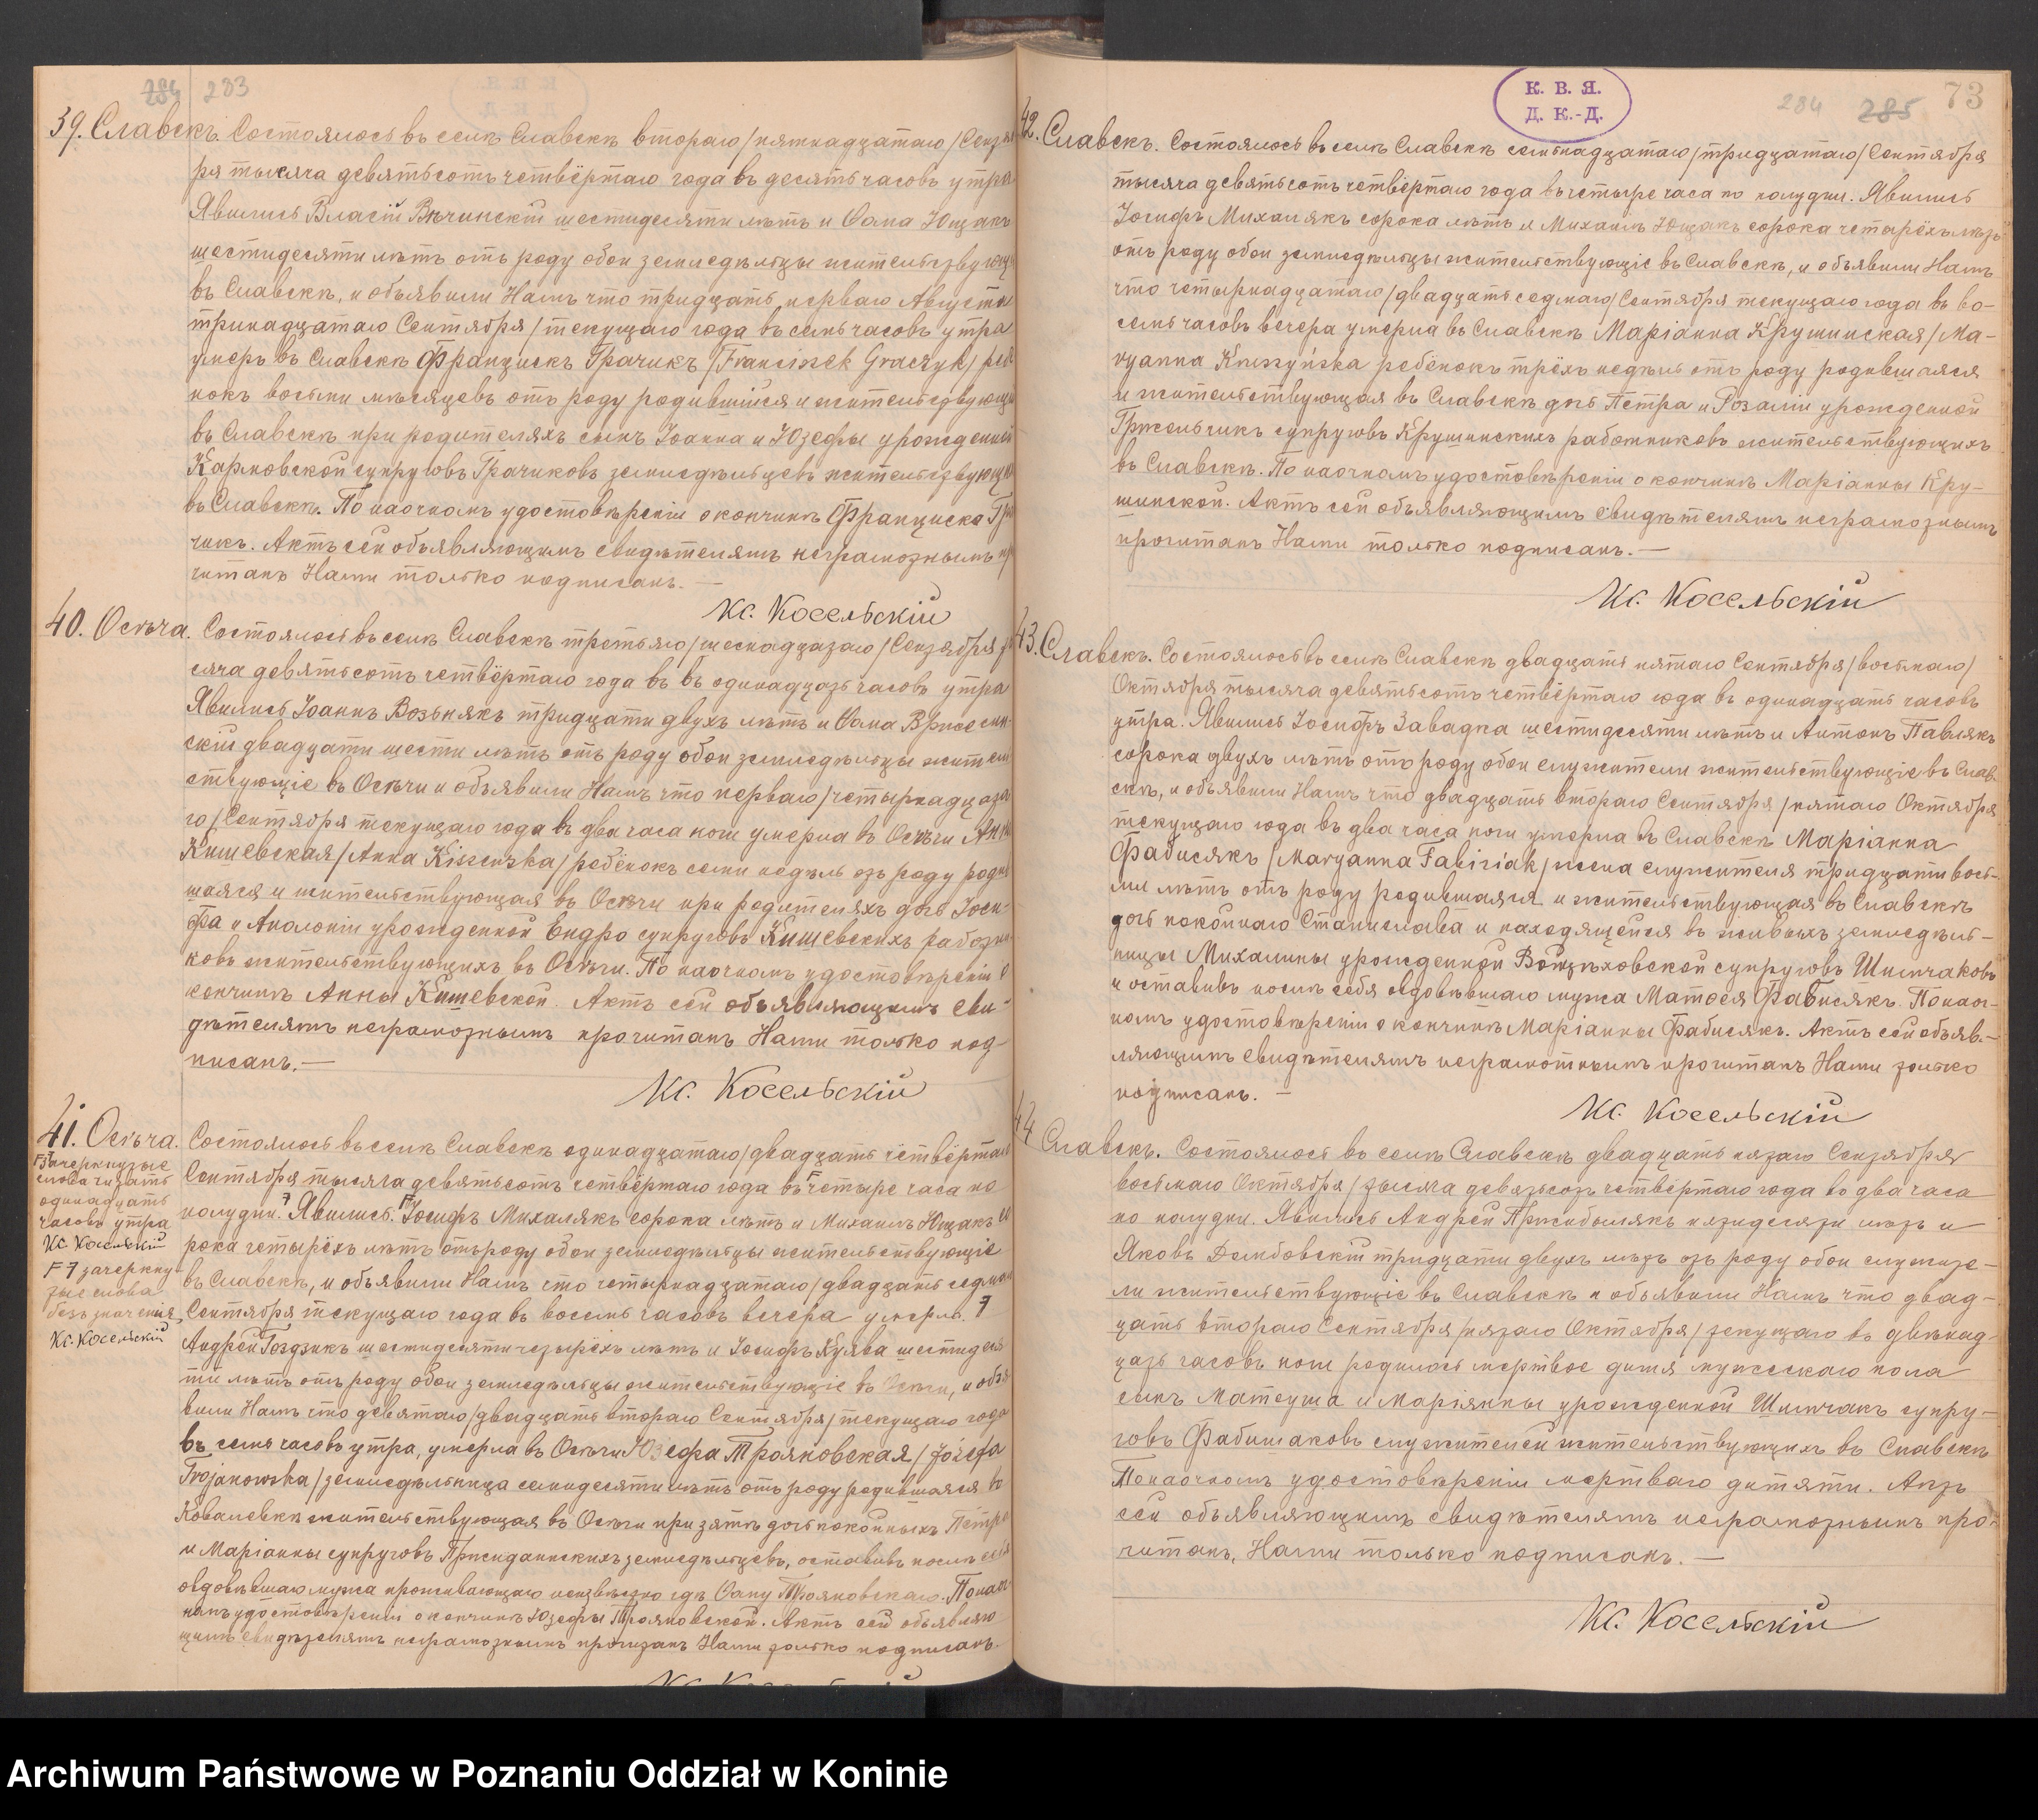 284 283
39. Славскъ. Состоялось въ селѣ Славскѣ втораго /пятнадцатаго/ Сентяб
ря тысяча девятьсотъ четвёртаго года въ десять часовъ утра
Явились Власій Вѣчинскій шестидесяти лѣтъ и Ѳома Ющакъ
шестидесяти лѣтъ отъ роду обои земледѣльцы жительствующ
въ Славскѣ, и объявили Намъ что тридцать перваго Августа
тринадцатаго Сентября /текущаго года въ семь часовъ утра
умеръ въ Славскѣ Францискъ Грачикъ /Franciszek Graczyk/ реб
нокъ восьми мѣсяцевъ отъ роду родившійся и жительствующ
въ Славскѣ при родителяхъ сынъ Іоанна и Юзефы урожденной
Карповской супруговъ Грачиковъ земледѣльцевъ жительствующ
въ Славскѣ. По наочномъ удостовѣреніи о кончинѣ Франциска Гра
чикъ. Актъ сей объявляющимъ свидѣтелямъ неграмотнымъ пр
читанъ Нами только подписанъ. —
Кс. Косельскій
40. Осѣча. Состоялось въ селѣ Славскѣ третьяго /шеснадцатаго/ Сентября ты
сяча девятьсотъ четвёртаго года въ въ одинадцать часовъ утра
Явились Іоаннъ Возьнякъ тридцати двухъ лѣтъ и Ѳома Вржесин-
скій двадцати шести лѣтъ отъ роду обои земледѣльцы жител
ствующіе въ Осѣчи и объявили Намъ что перваго /четырнадцата
го/ Сентября текущаго года въ два часа ночи умерла въ Осѣчи Анна
Кишевская /Anna Kiszewska/ ребёнокъ семи недѣль отъ роду родив
шаяся и жительствующая въ Осѣчи при родителяхъ дочь Іоси-
фа и Аполоніи урожденной Ендро супруговъ Кишевскихъ работни-
ковъ жительствующихъ въ Осѣчи. По наочномъ удостовѣреніи о
кончинѣ Анны Кишевской. Актъ сей объявляющимъ сви-
дѣтелямъ неграмотнымъ прочитанъ Нами только под-
писанъ. —
Кс. Косельскій
41. Осѣча. Состоялось въ селѣ Славскѣ одинадцатаго /двадцать четвёртаго
Сентября тысяча девятьсотъ четвёртаго года въ четыре часа по
полудни. Явились Іосифъ Михалякъ сорока лѣтъ и Михаилъ Ющакъ со
рока четырёхъ лѣтъ отъ роду обои земледѣльцы жительствующіе
въ Славскѣ, и объявили Намъ что четырнадцатаго /двадцать седмаго
Сентября текущаго года въ восемь часовъ вечера умерла
зачеркнутые
слова читать
одинадцать
часовъ утра
Кс. Косельскій
F 7 зачеркну-
тые слова
безъ значенія
Кс. Косельскій
Андрей Гоздзикъ шестидесяти четырёхъ лѣтъ и Іосифъ Кулява шестидеся
ти лѣтъ отъ роду обои земледѣльцы жительствующіе въ Осѣчи, и объя
вили Намъ что девятаго /двадцать втораго Сентября/ текущаго года
въ семь часовъ утра, умерла въ Осѣчи Юзефа Трояновская /Józefa
Trojanowska/ земледѣльница семидесяти лѣтъ отъ роду родившаяся въ
Ковалевкѣ жительствующая въ Осѣчи при зятѣ дочь покойныхъ Петра
и Маріанны супруговъ земледѣльцевъ, оставивъ послѣ себя
овдовѣвшаго мужа проживающаго неизвѣстно гдѣ Ѳому Трояновскаго. По наоч
номъ удостовѣреніи о кончинѣ Юзефы Трояновской. Актъ сей объявляю
щимъ свидѣтелямъ неграмотнымъ прочитанъ Нами только подписанъ.
К. В. Я.
Д. К.-Д.
284 285 73
42. Славскъ. Состоялось въ селѣ Славскѣ семьнадцатаго /тридцатаго/ Сентября
тысяча девятьсотъ четвёртаго года въ четыре часа по полудни. Явились
Іосифъ Михалякъ сорока лѣтъ и Михаилъ Ющакъ сорока четарёхъ лѣтъ
отъ роду обои земледѣльцы жительствующіе въ Славскѣ, и объявили Намъ
что четырнадцатаго /двадцать седмаго/ Сентября текущаго года въ во-
семь часовъ вечера умерла въ Славскѣ Маріанна Крушинская /Ma-
ryanna Kruszyńska ребёнокъ трёхъ недѣль отъ роду родившаяся
и жительствующая въ Славскѣ дочь Петра и Розаліи урожденной
Гржельчикъ супруговъ Крушинскихъ работниковъ жительствующихъ
въ Славскѣ. По наочномъ удостовѣреніи о кончинѣ Маріанны Кру-
шинской. Актъ сей объявляющимъ свидѣтелямъ неграмотнымъ
прочитанъ Нами только подписанъ. —
Кс. Косельскій
43. Славскъ. Состоялось въ селѣ Славскѣ двадцать пятаго Сентября /восьмаго/
Октября тысяча девятьсотъ четвёртаго года въ одинадцать часовъ
утра. Явились Іосифъ Завадка шестидесяти лѣтъ и Антонъ Павлякъ
сорока двухъ лѣтъ отъ роду обои служители жительствующіе въ Слав
скѣ, и объявили Намъ что двадцать втораго Сентября /пятаго Октября
текущаго года въ два часа ночи умерла въ Славскѣ Маріанна
Фабисякъ /Maryanna Fabisiak/ жена служителя тридцати вось-
ми лѣтъ отъ роду родившаяся и жительствующая въ Славскѣ
дочь покойнаго Станислава и находящейся въ живыхъ земледѣль-
ницы Михалины урожденной Войцѣховской супруговъ Шимчаковъ
и оставивъ послѣ себя овдовѣвшаго мужа Матвея Фабисякъ. По наоч-
номъ удостовѣреніи о кончинѣ Маріанны Фабисякъ. Актъ сей объяв-
ляющимъ свидѣтелямъ неграмотнымъ прочитанъ Нами только
подписанъ. —
Кс. Косельскій
44 Славскъ. Состоялось въ селѣ Славскѣ двадцать пятаго Сентября
восьмаго Октября /тысяча девятьсотъ четвёртаго года въ два часа
по полудни. Явились Андрей Пржибылякъ пятидесяти лѣтъ и
Яковъ Домбовскій тридцати двухъ лѣтъ отъ роду обои служите-
ли жительствующіе въ Славскѣ и объявили Намъ что двад-
цать втораго Сентября /пятаго Октября/ текущаго въ двѣнад-
цать часовъ ночи родилось мертвое дитя мужескаго пола
сынъ Матеуша и Маріянны урожденной Шимчакъ супру-
говъ Фабишаковъ служителей жительствующихъ въ Славскѣ
По наочномъ удостовѣреніи мертваго дитяти. Актъ
сей объявляющимъ свидѣтелямъ неграмотнымъ про-
читанъ, Нами только подписанъ. —
Кс. Косельскій
Archiwum Państwowe w Poznaniu Oddział w Koninie